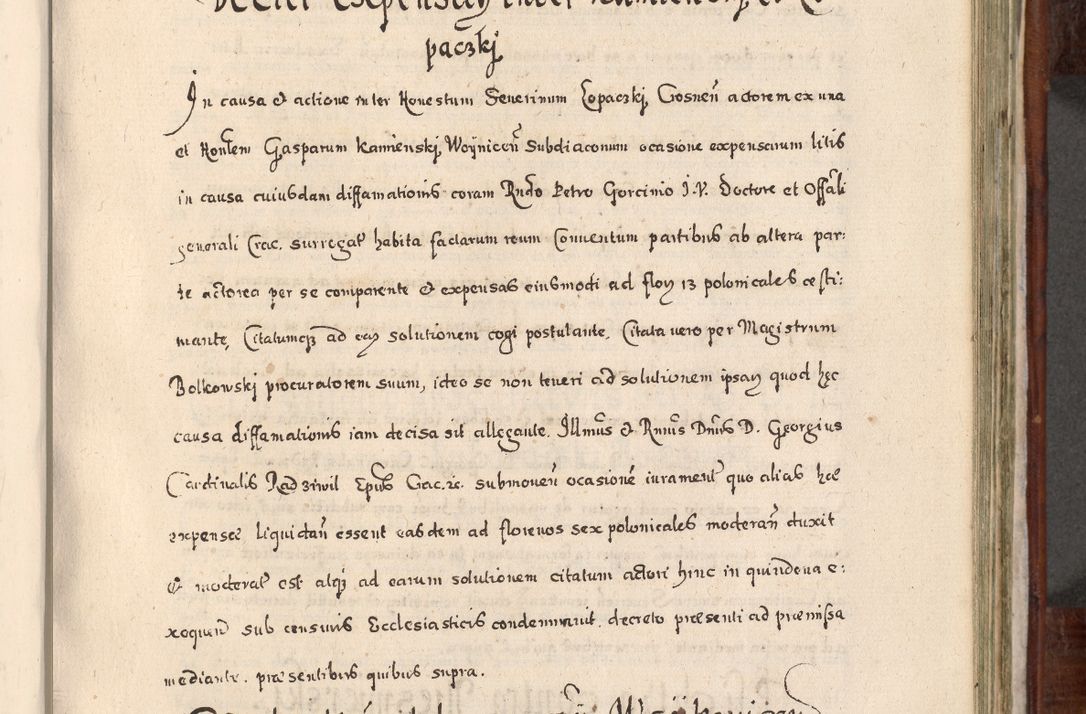 paczkj
In causa et actione inter Honestum Seuerinum Lopaczkj, Gosneñ actorem ex una
et Honłem Gasparum Kamienskj, Woyniceñ Subdiaconum ocasione expensarum litis
in causa cuiusdam diffamationis coram Rndo Petro Gorcinio I.V. Doctore et Offāli
generali Crac. surregat habita factarum reum Conuentum partibus ab altera par:
te actorea per se comparente et expensas eiusmodi ad floɲ 13 polonicales æsti:
mante, Citatumqʒ ad eaɲ solutionem cogi postulante, Citata uero per Magistrum
Bolkowskj procuratorem suum, ideo se non teneri ad solutionem ipsaɲ quod hęc
causa diffamationis iam decisa sit allegante. Illmus et Rmus Dnus D. Georgius
Cardinalis Radziwil Epus Crac. ic. submoueñ ocasione iurament quo alias hæ
expensæ liquidañ essent easdem ad florenos sex polonicales moderañ duxit
et moderat est atqʒ ad earum solutionem citatum actori hinc in quindena e:
xoquend sub censuris Ecclesiasticis condemnauit, decreto præsenti ad præmissa
mediante. præsentibus quibus supra.